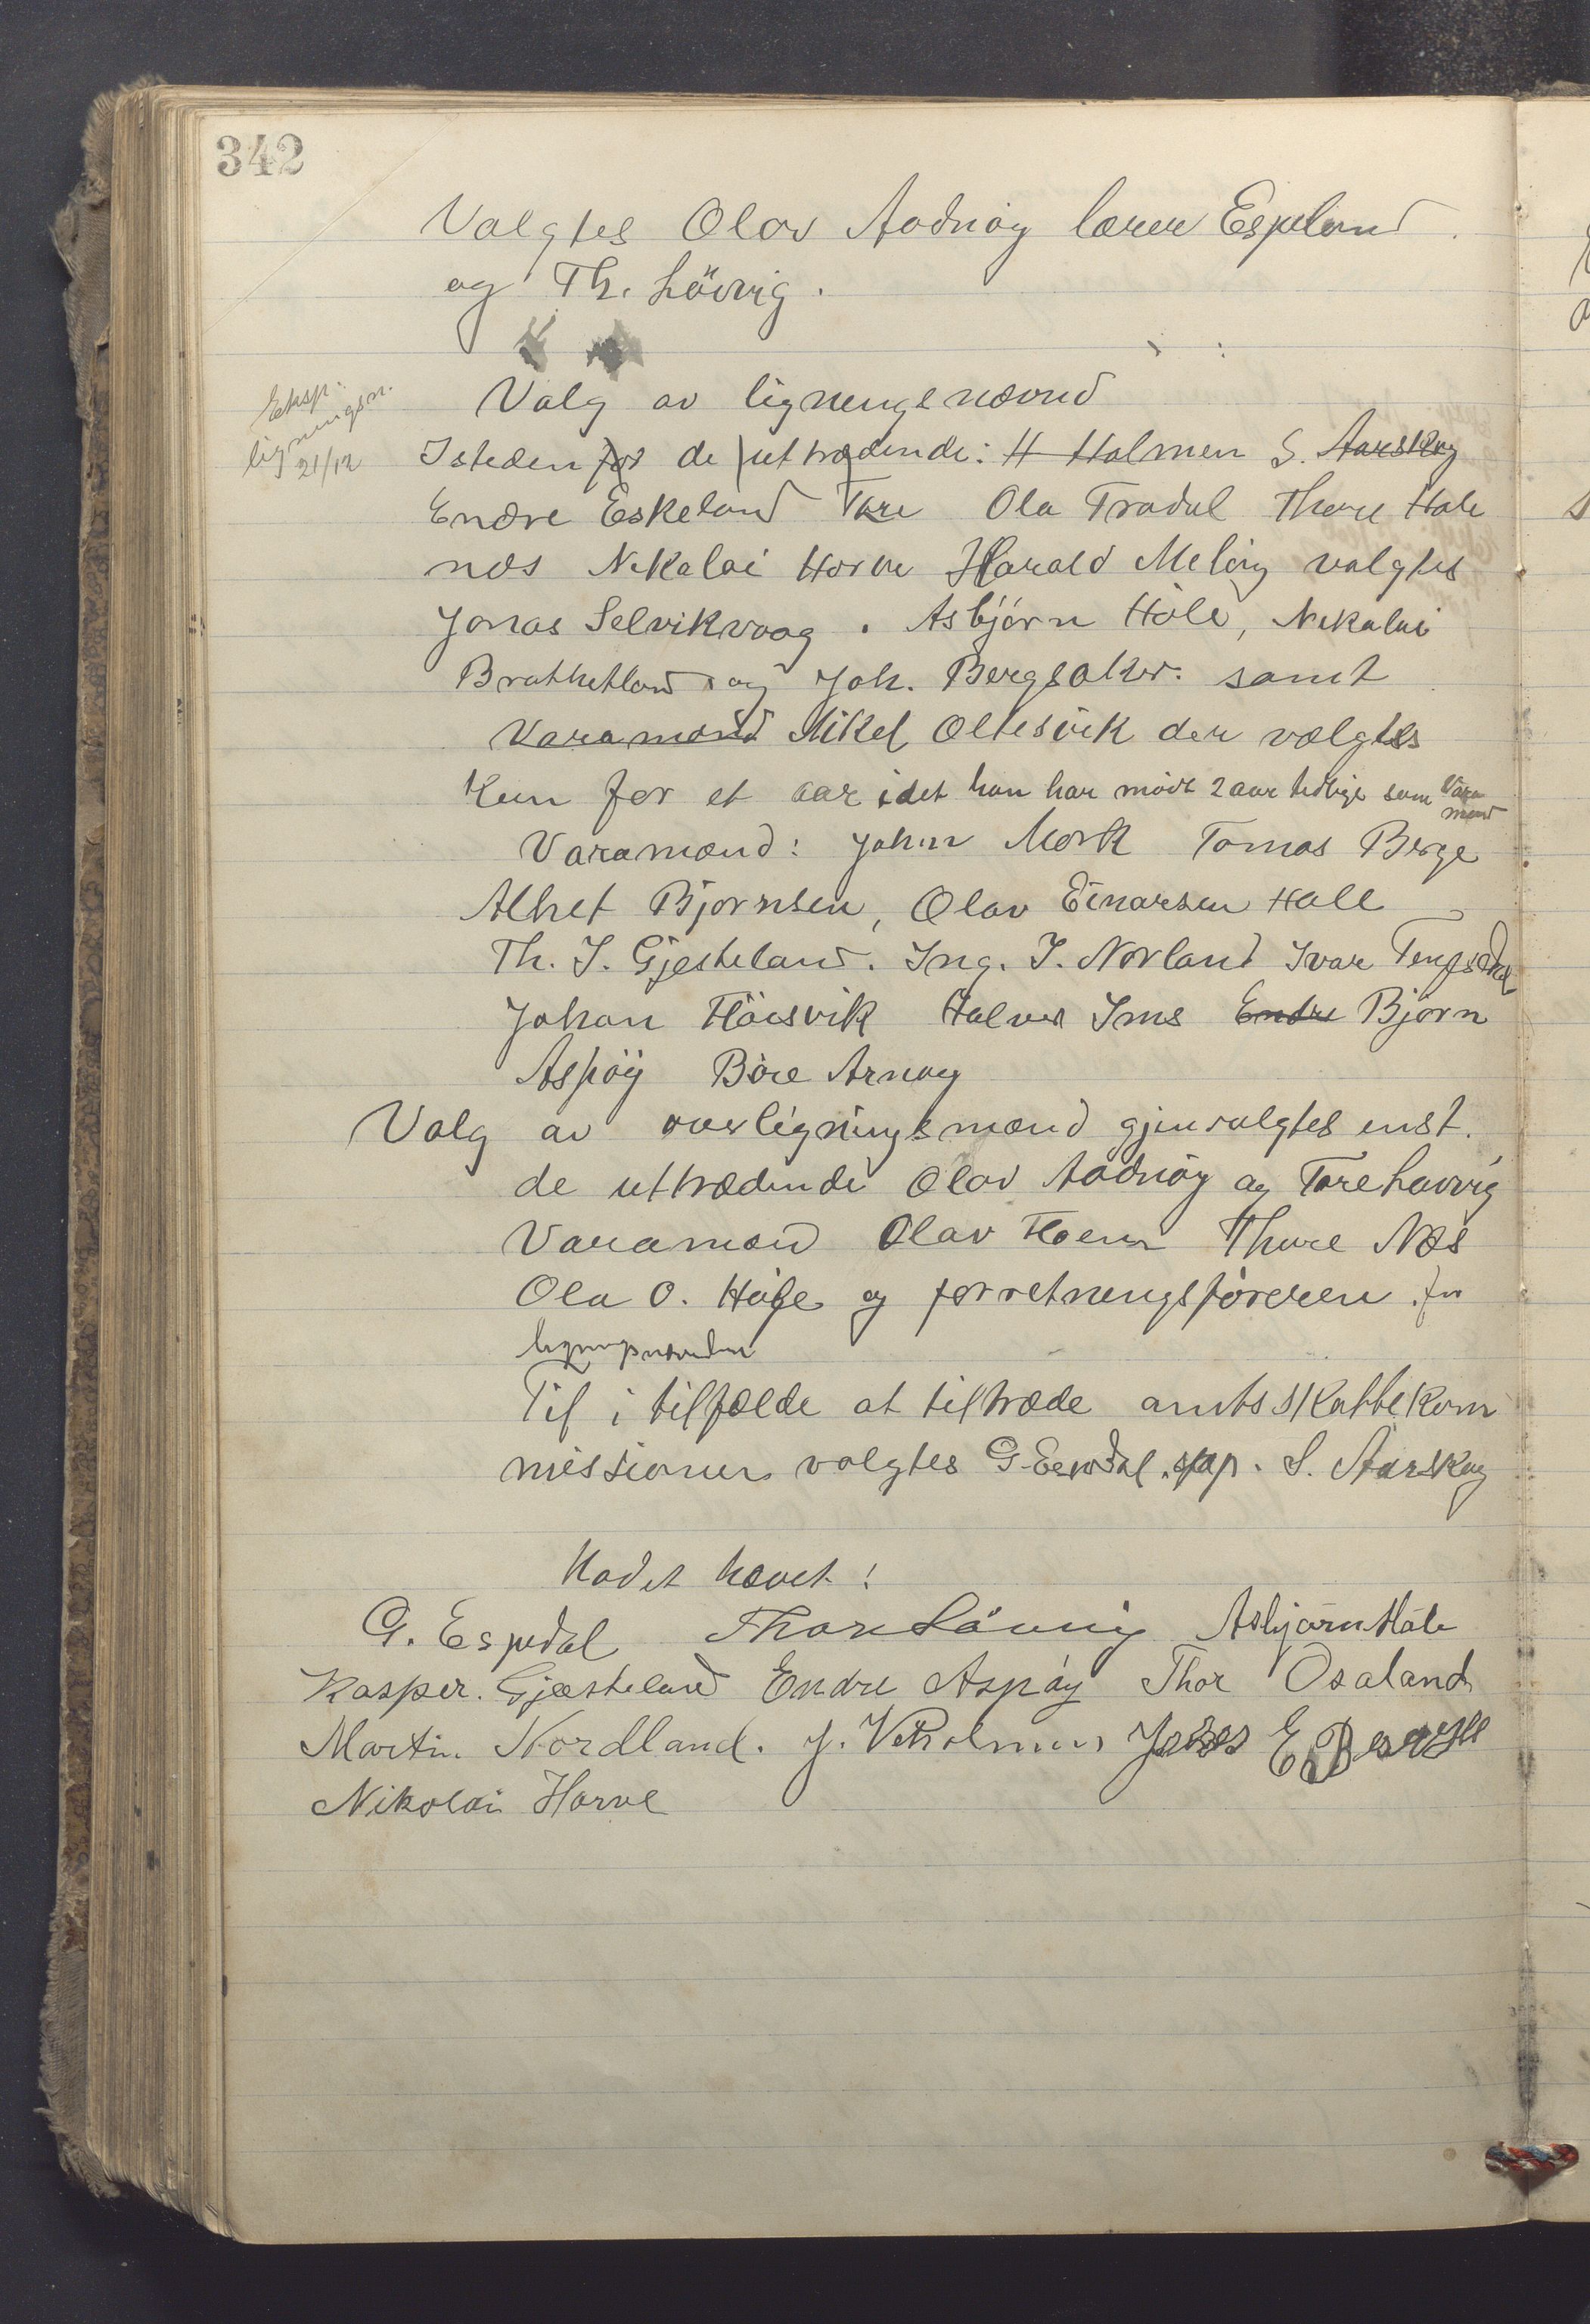 342
Valgtes Olav Aadnöy lærer Espeland
og Th. Lövvig.
Eksp.
ligningsn.
21/12
Valg av ligningsnævnd
Isteden for de uttrædende: H Holmen S. Aarskog
Endre Eskeland Tore Ola Tradal Thore Hale
næs Nikolai Horve Harald Melöy valgtes
Jonas Selvikvaag. Asbjörn Hole, Nikolai
Brattetland og Joh. Bergsaker. samt
Varamænd Mikel Oltesvik der vælgtes
Kun for et aar idet han har mödt 2 aar tidlige som Vara
mand
Varamænd: John Mork Tomas Berge
Alhet Bjornsen, Olav Einarsen Hall
Th. I. Gjesteland. Ing. I. Norland Ivar Tengsdal
Johan Höisvik Halvor Ims Endre Björn
Aspöy Böre Arnöy
Valg av overligningsmænd gjenvalgtes enst.
de uttrædende Olav Aadnöy og Tore Lövvig
Varamænd Olav Hoem Thore Næs
Ola O. Höle og forretningsföreren for
ligningsnævnden
Til i tilfælde at tiltræde amtsskattekom
missionen valgtes G. Espedal. sup. S. Aarskog
Mödet hævet!
G. Espedal Thore Lövvig Asbjörn Hole
Kasper. Gjesteland Endre Aspöy Thor Osaland
Martin Nordland. J. Vetholmen E Berge
Nikolai Horve